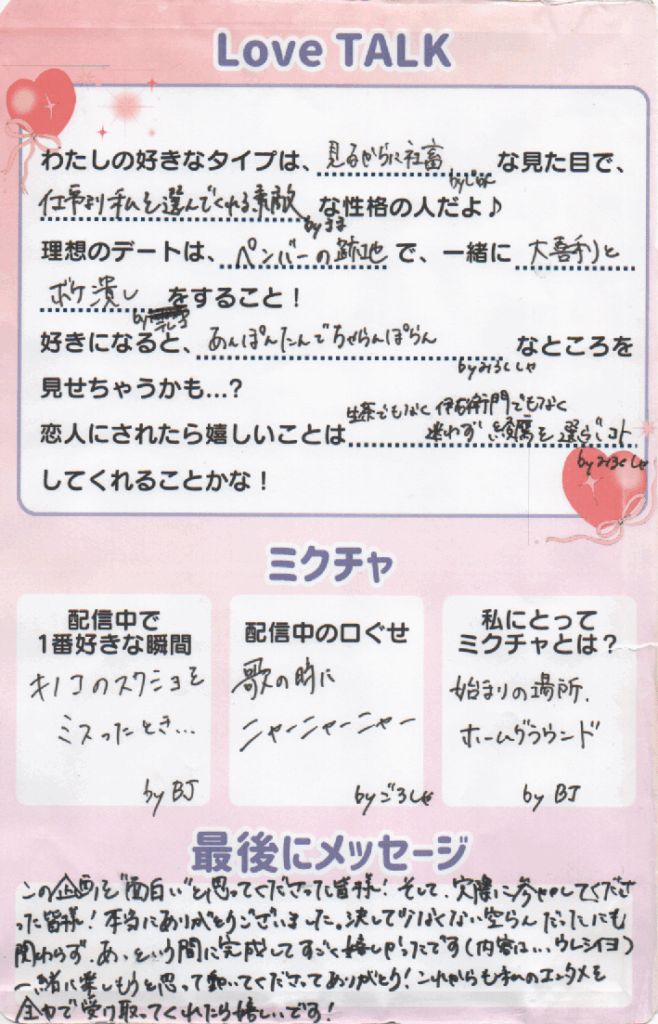 Love TALK
わたしの好きなタイプは、見るからに社畜な見た目で、
仕事より私を選んでくれる素敵な性格の人だよ♪
理想のデートは、ペンバーの跡地で、一緒に大喜利と
ボケ潰しをすること！
好きになると、あんぽんたんでちゃらんぽらんなところを
byみろくしゃ
見せちゃうかも…？
生茶でもなく伊右衛門でもなく
恋人にされたら嬉しいことは迷わず綾鷹を選らぶコト
byみろくしゃ
してくれることかな！
ミクチャ
配信中で
1番好きな瞬間
キノコのスクショを
ミスったとき…
by BJ
配信中の口ぐせ
歌の時に
ニャーニャーニャー
byごろしゃ
私にとって
ミクチャとは？
始まりの場所.
ホームグラウンド
by BJ
最後にメッセージ
この企画を"面白い"と思ってくださった皆様！そして、実際に参加してくださ
った皆様！本当にありがとうございました。決して少なくない空らんだったにも
関わらず、あっという間に完成してすごく嬉しかったです(内容は…ウレシイヨ)
一緒に楽しもうと思って動いてくださってありがとう！これからも私のエンタメを
全力で受け取ってくれたら嬉しいです！